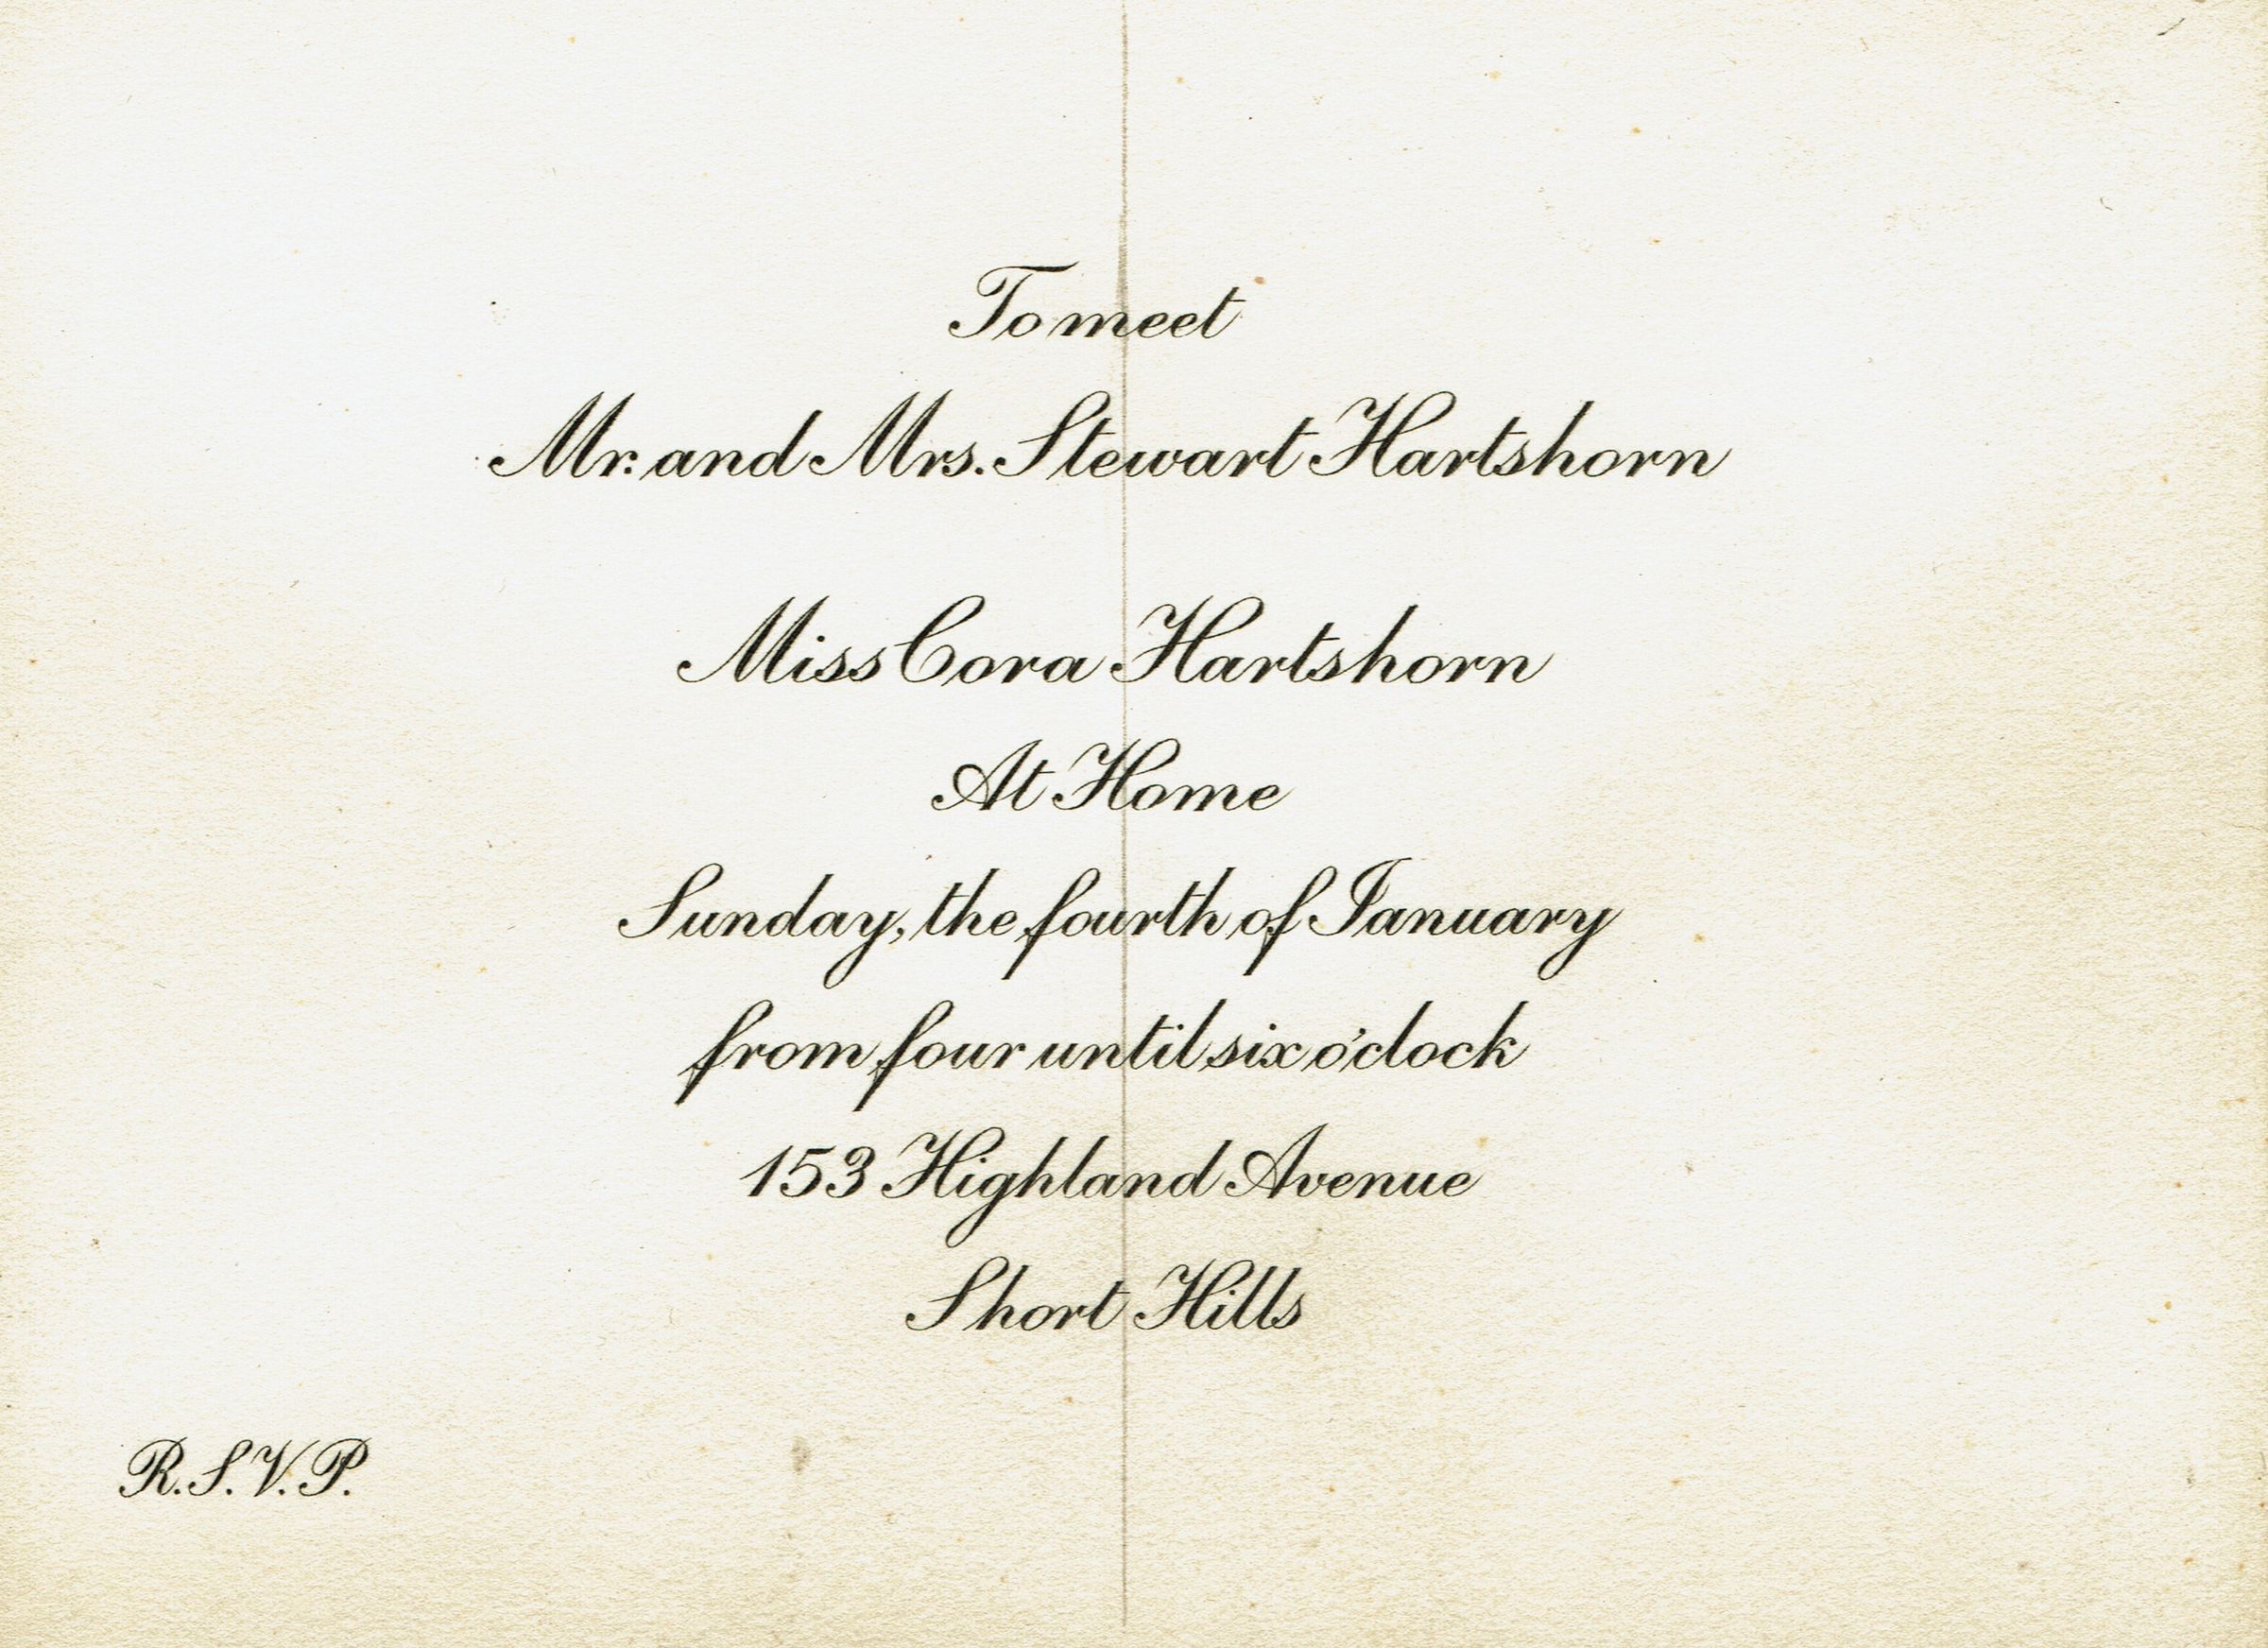 To meet
Mr. and Mrs. Stewart Hartshorn
Miss Cora Hartshorn
At Home
Sunday, the fourth of January
from four until six o'clock
153 Highland Avenue
Short Hills
R.S.V.P.